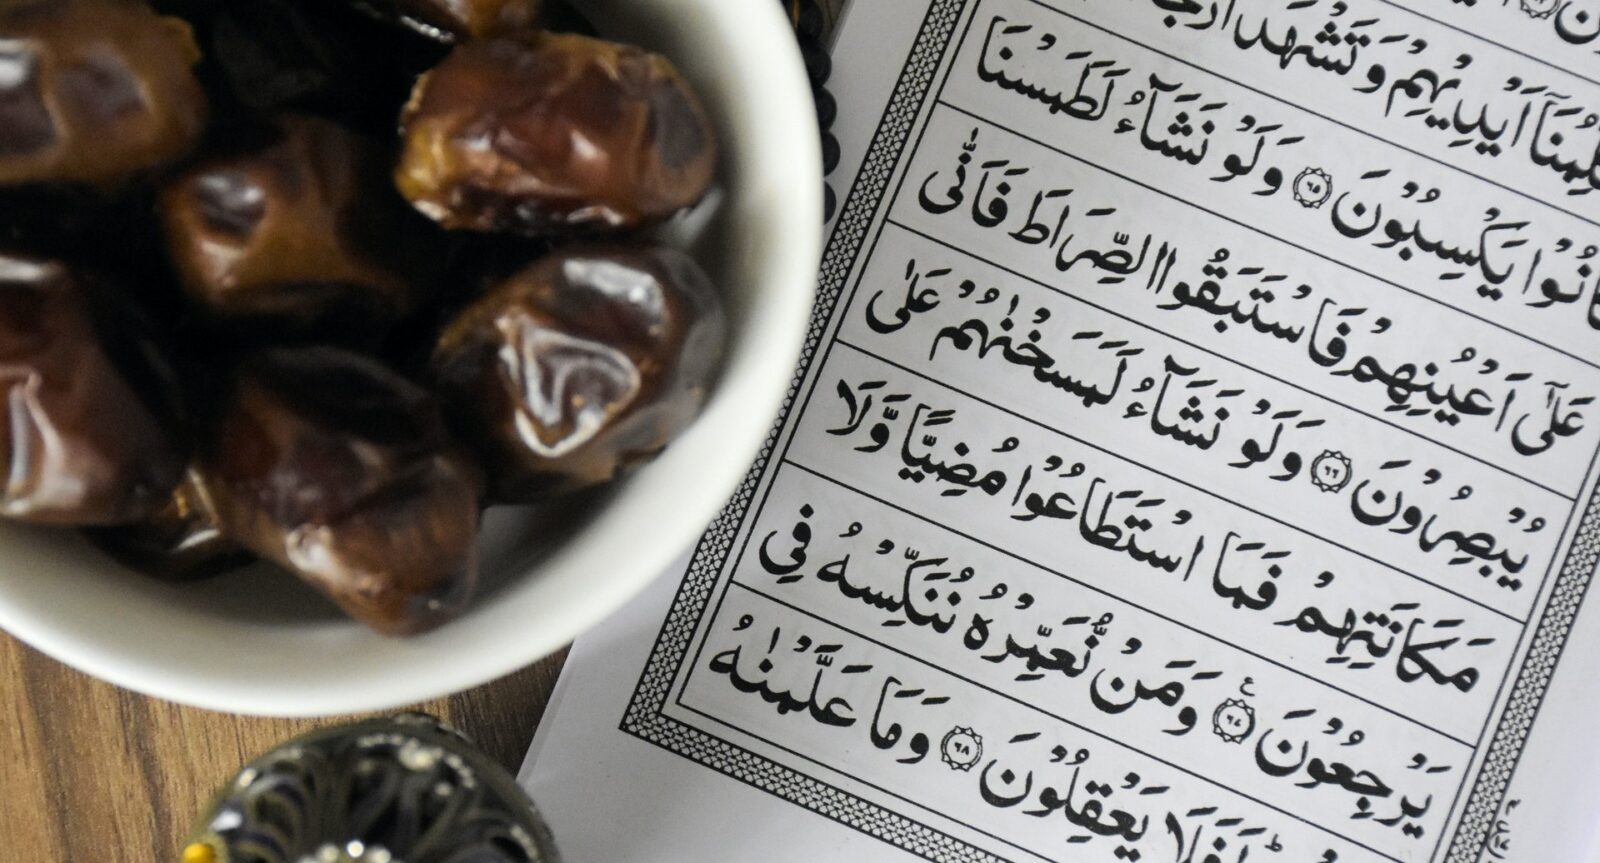 اَيْدِيْهِمْ وَتَشْهَدُ
كَانُوْا يَكْسِبُوْنَ ﴿٦٥﴾ وَلَوْ نَشَآءُ لَطَمَسْنَا
عَلٰٓى اَعْيُنِهِمْ فَاسْتَبَقُوا الصِّرَاطَ فَاَنّٰى
يُبْصِرُوْنَ ﴿٦٦﴾ وَلَوْ نَشَآءُ لَمَسَخْنٰهُمْ عَلٰى
مَكَانَتِهِمْ فَمَا اسْتَطَاعُوْا مُضِيًّا وَّلَا
يَرْجِعُوْنَ ﴿٦٧﴾ ع وَمَنْ نُّعَمِّرْهُ نُنَكِّسْهُ فِى
اَفَلَا يَعْقِلُوْنَ ﴿٦٨﴾ وَمَا عَلَّمْنٰهُ